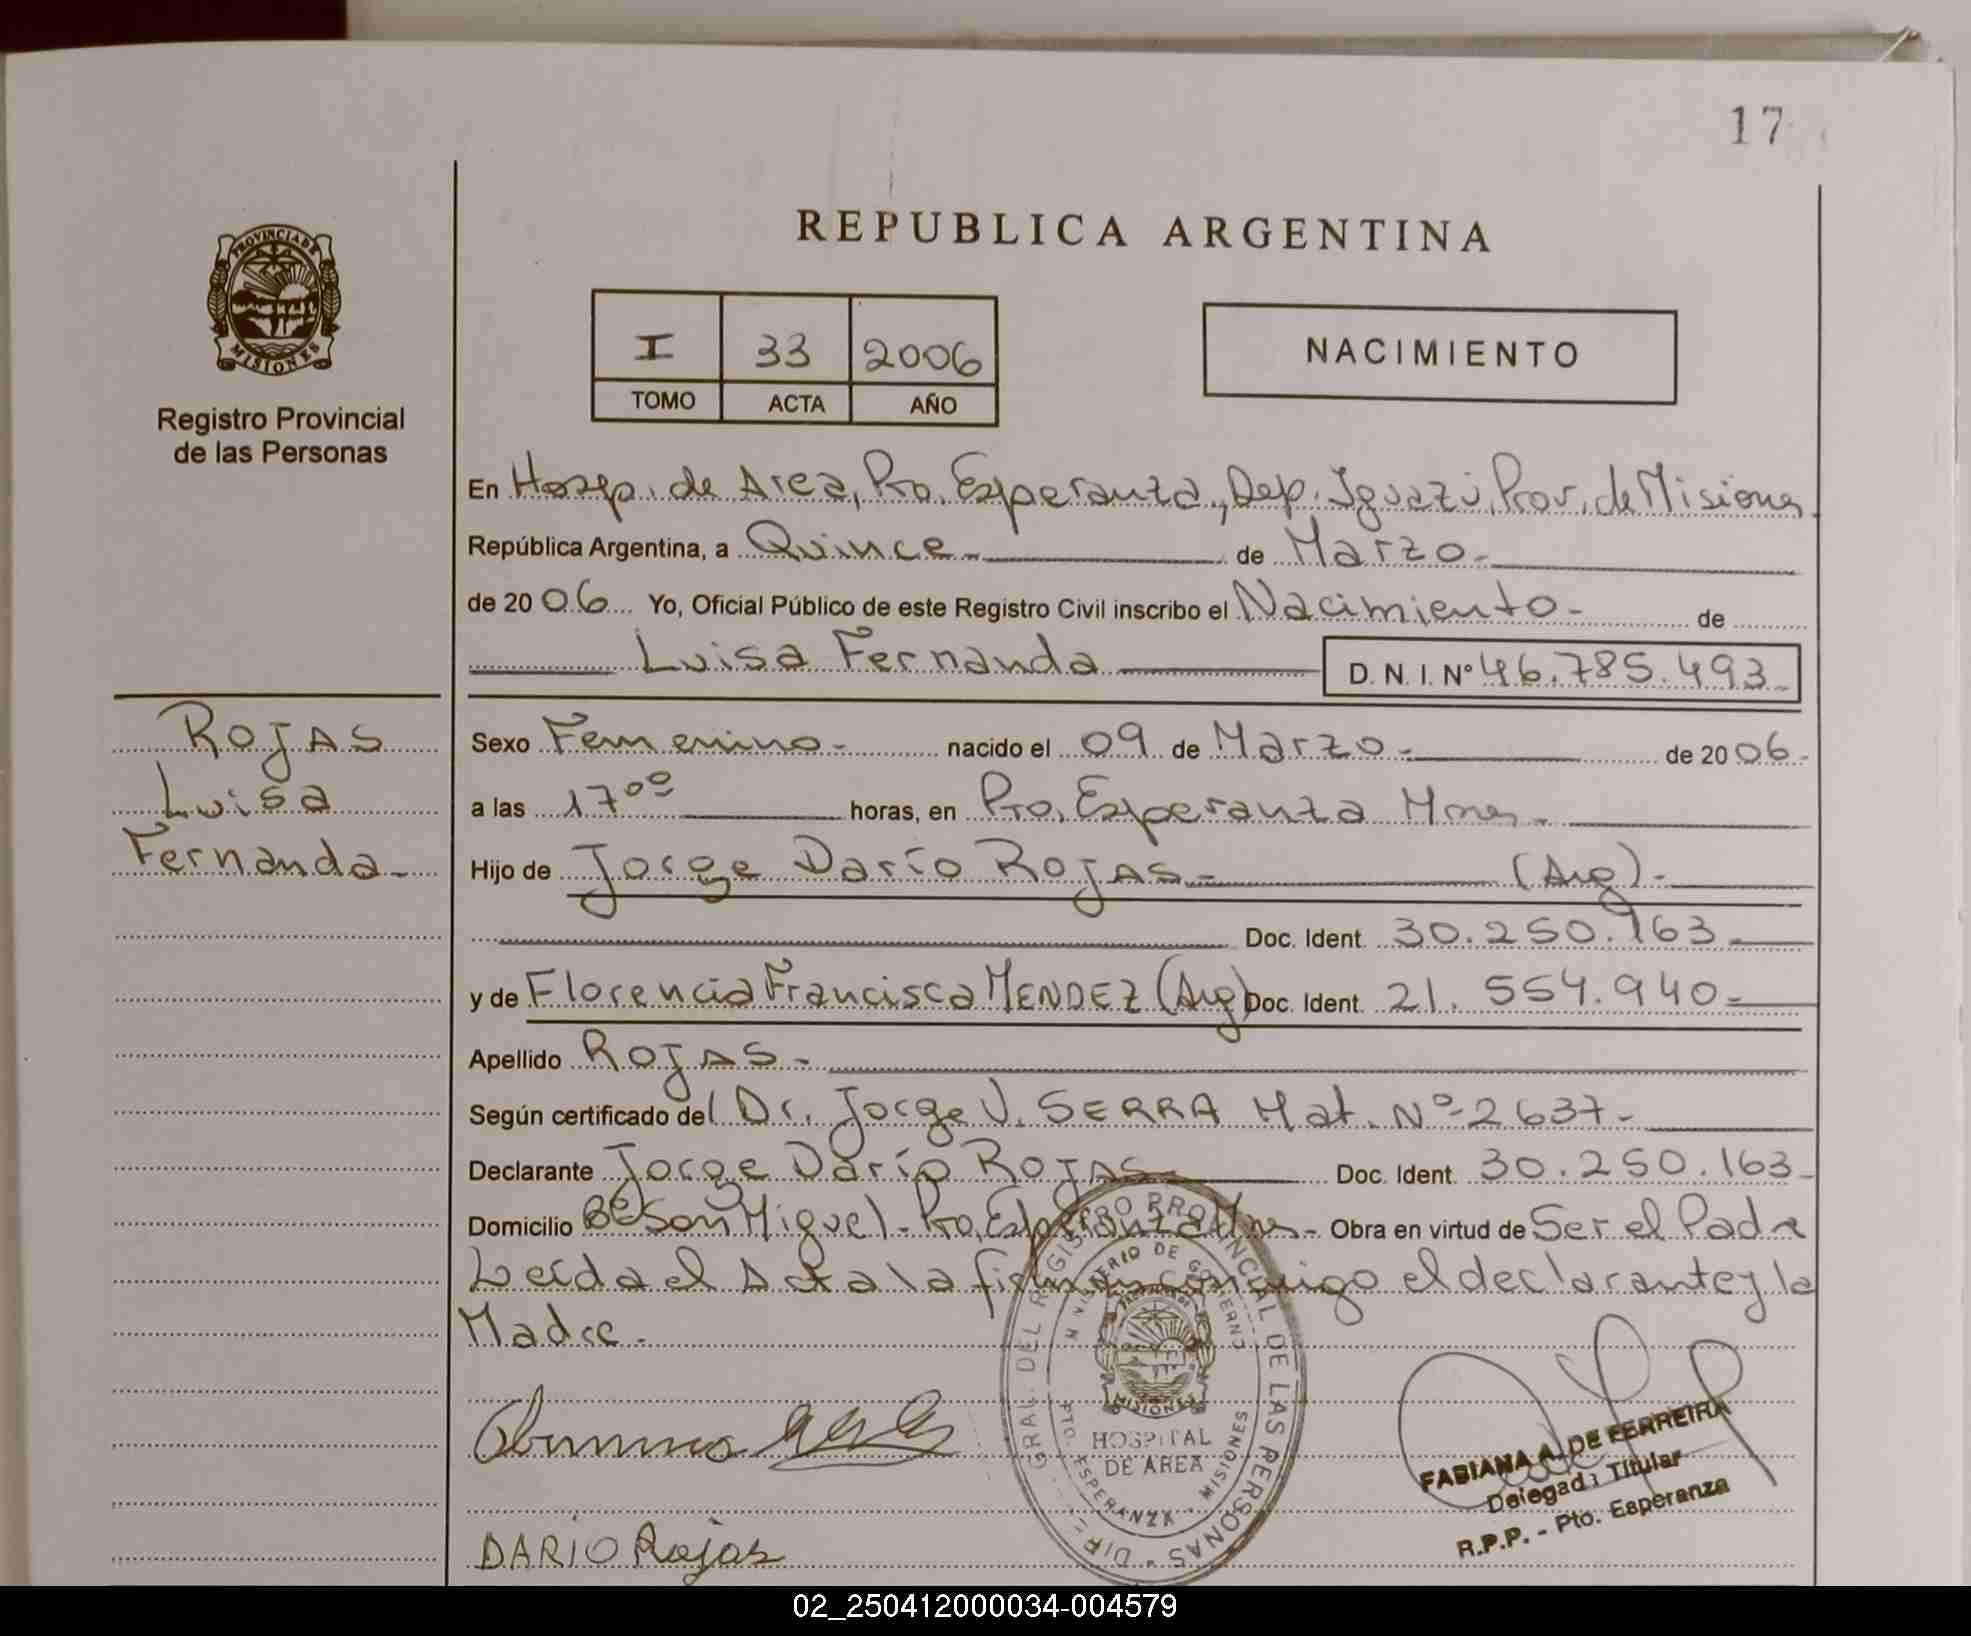 17
REPUBLICA ARGENTINA
PROVINCIA DE
MISIONES
Registro Provincial
de las Personas
I 33 2006
TOMO ACTA AÑO
NACIMIENTO
En Hosp. de Area, Pto. Esperanza, Dep. Iguazú, Prov. de Misiones
República Argentina, a Quince de Marzo
de 2006 Yo, Oficial Público de este Registro Civil inscribo el Nacimiento de
Luisa Fernanda D. N. I. N° 46.785.493
ROJAS
Luisa
Fernanda
Sexo Femenino nacido el 09 de Marzo de 2006
a las 17⁰⁰ horas, en Pto. Esperanza Mnes.
Hijo de Jorge Darío ROJAS (Arg)
Doc. Ident. 30.250.163
y de Florencia Francisca MENDEZ (Arg) Doc. Ident. 21.554.940
Apellido ROJAS
Según certificado del Dr. Jorge V. SERRA Mat. N° 2637
Declarante Jorge Darío ROJAS Doc. Ident. 30.250.163
Domicilio B° San Miguel - Pto. Esperanza Mnes - Obra en virtud de Ser el Padre
Leída el Acta la firman conmigo el declarante y la
Madre.
DIR. GRAL. DEL REGISTRO PROVINCIAL DE LAS PERSONAS
MINISTERIO DE GOBIERNO
MISIONES
HOSPITAL
DE AREA
PTO. ESPERANZA - MISIONES
FABIANA A. DE FERREIRA
Delegada Titular
R.P.P. - Pto. Esperanza
DARIO Rojas
02_250412000034-004579